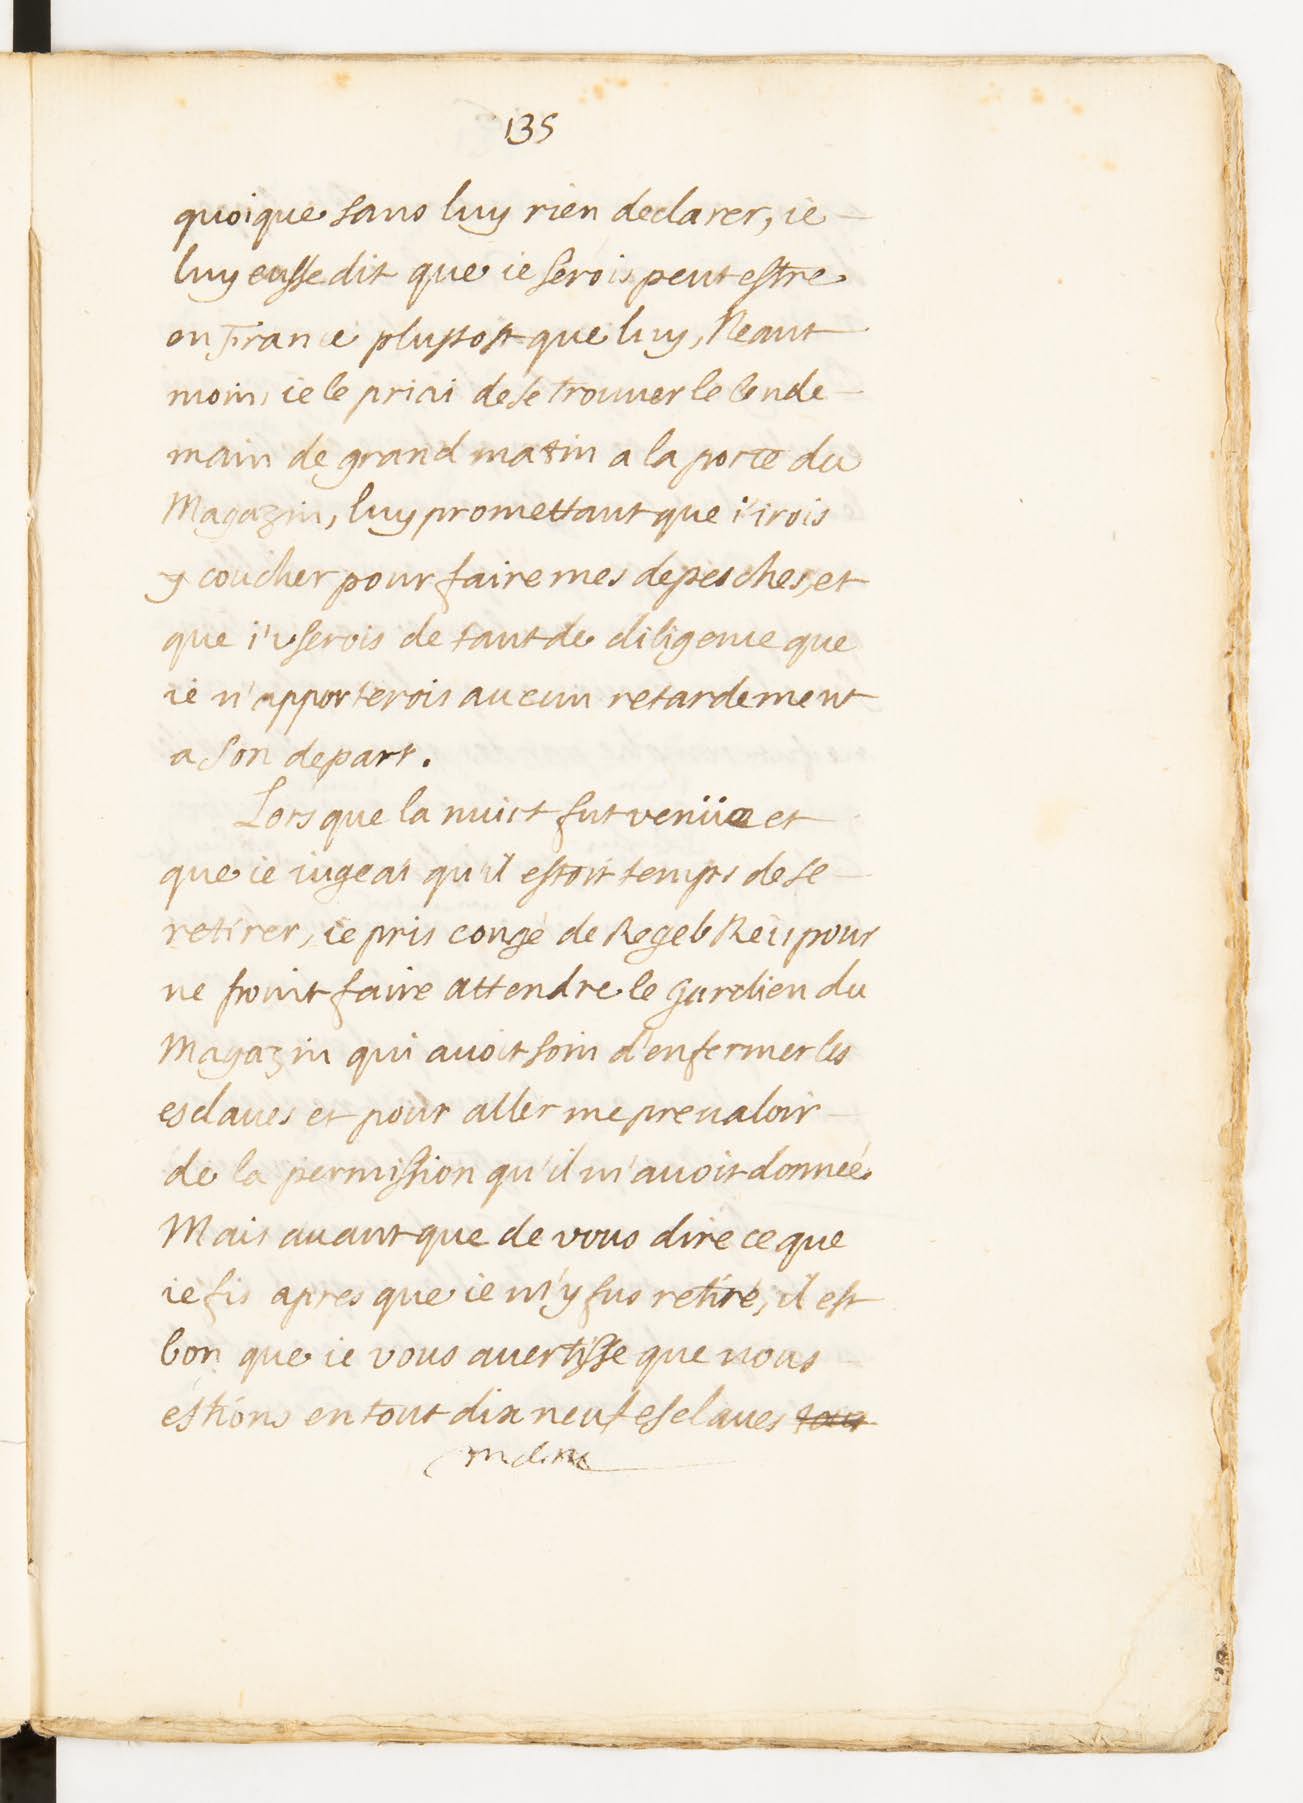 135
quoique sans luy rien declarer, ie
luy eusse dit que ie serois peut estre
en France plustost que luy, Neant
moins ie le priai de se trouuer le lende
main de grand matin a la porte du
Magazin, luy promettant que i'irois
y coucher pour faire mes depesches, et
que i'vserois de tant de diligence que
ie n'apporterois aucun retardement
a son depart.
Lors que la nuict fut venüe et
que ie iugeai qu'il estoit temps de se
retirer, ie pris congé de Regeb Reis pour
ne point faire attendre le Gardien du
Magazin qui auoit soin d'enfermer les
esclaues et pour aller me preualoir
de la permission qu'il m'auoit donnée
Mais auant que de vous dire ce que
ie fis apres que ie m'y fus retiré, il est
bon que ie vous auertisse que nous
estions en tout dix neuf esclaues